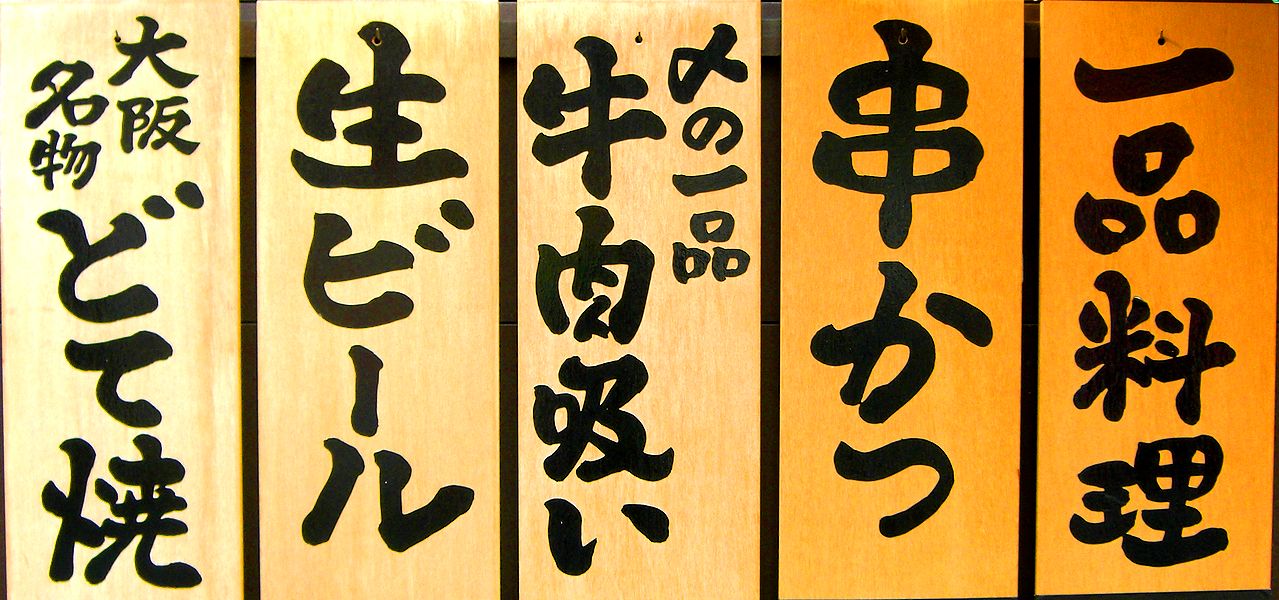 一品料理
串かつ
〆の一品
牛肉吸い
生ビール
大阪
名物
どて焼